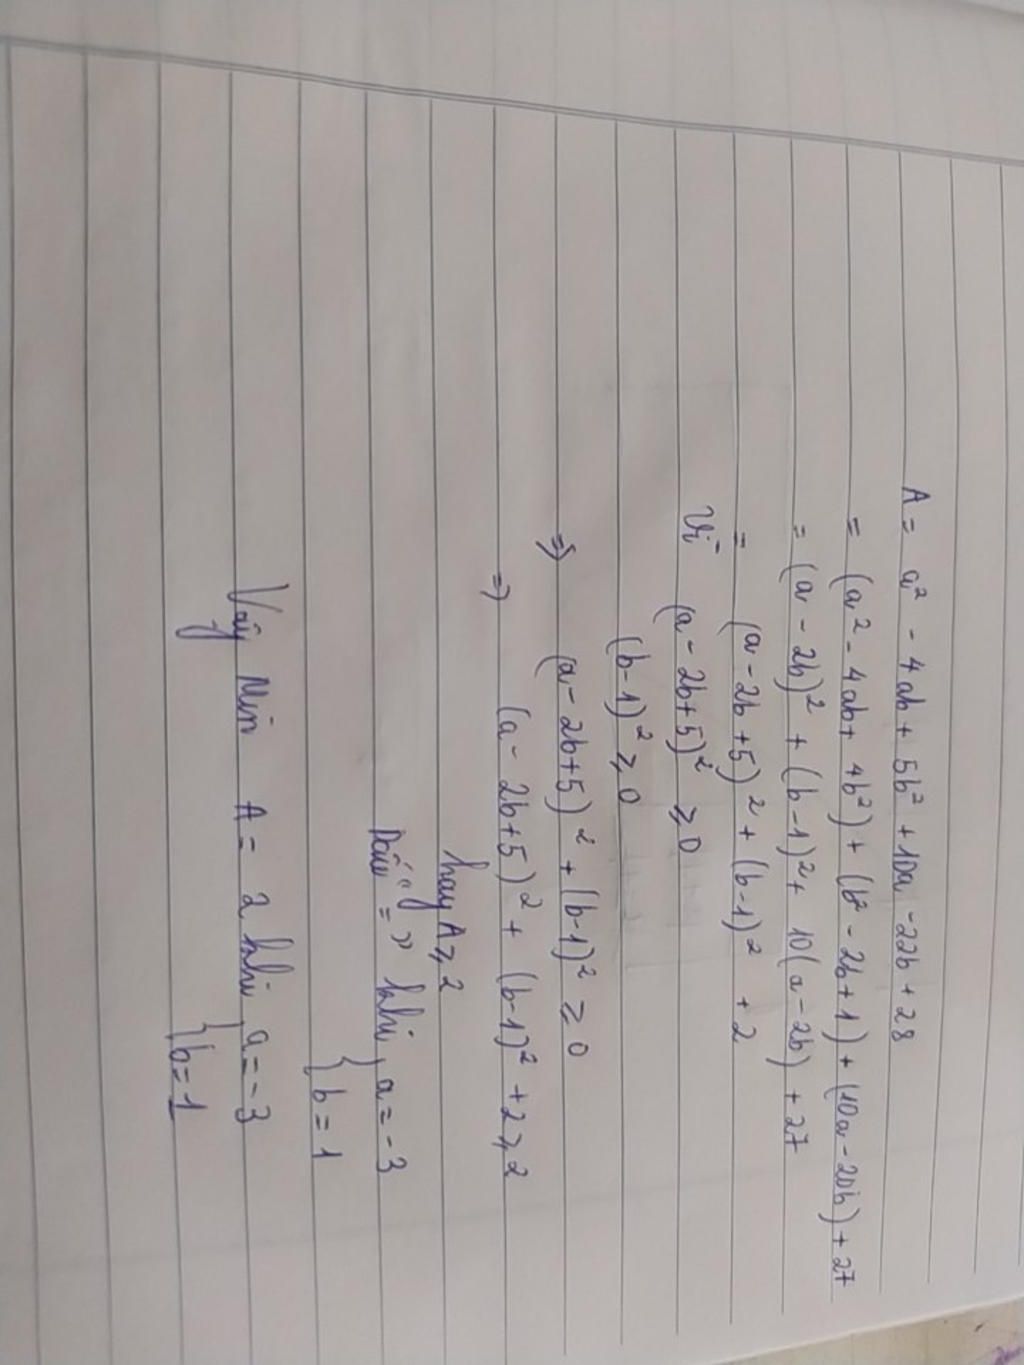 A = a² - 4ab + 5b² + 10a - 22b + 28
= (a² - 4ab + 4b²) + (b² - 2b + 1) + (10a - 20b) + 27
= (a - 2b)² + (b - 1)² + 10(a - 2b) + 27
= (a - 2b + 5)² + (b - 1)² + 2
Vì (a - 2b + 5)² ⩾ 0
(b - 1)² ⩾ 0
=> (a - 2b + 5)² + (b - 1)² ⩾ 0
=> (a - 2b + 5)² + (b - 1)² + 2 ⩾ 2
hay A ⩾ 2
Dấu "=" khi { a = -3
b = 1
Vậy Min A = 2 khi { a = -3
b = 1